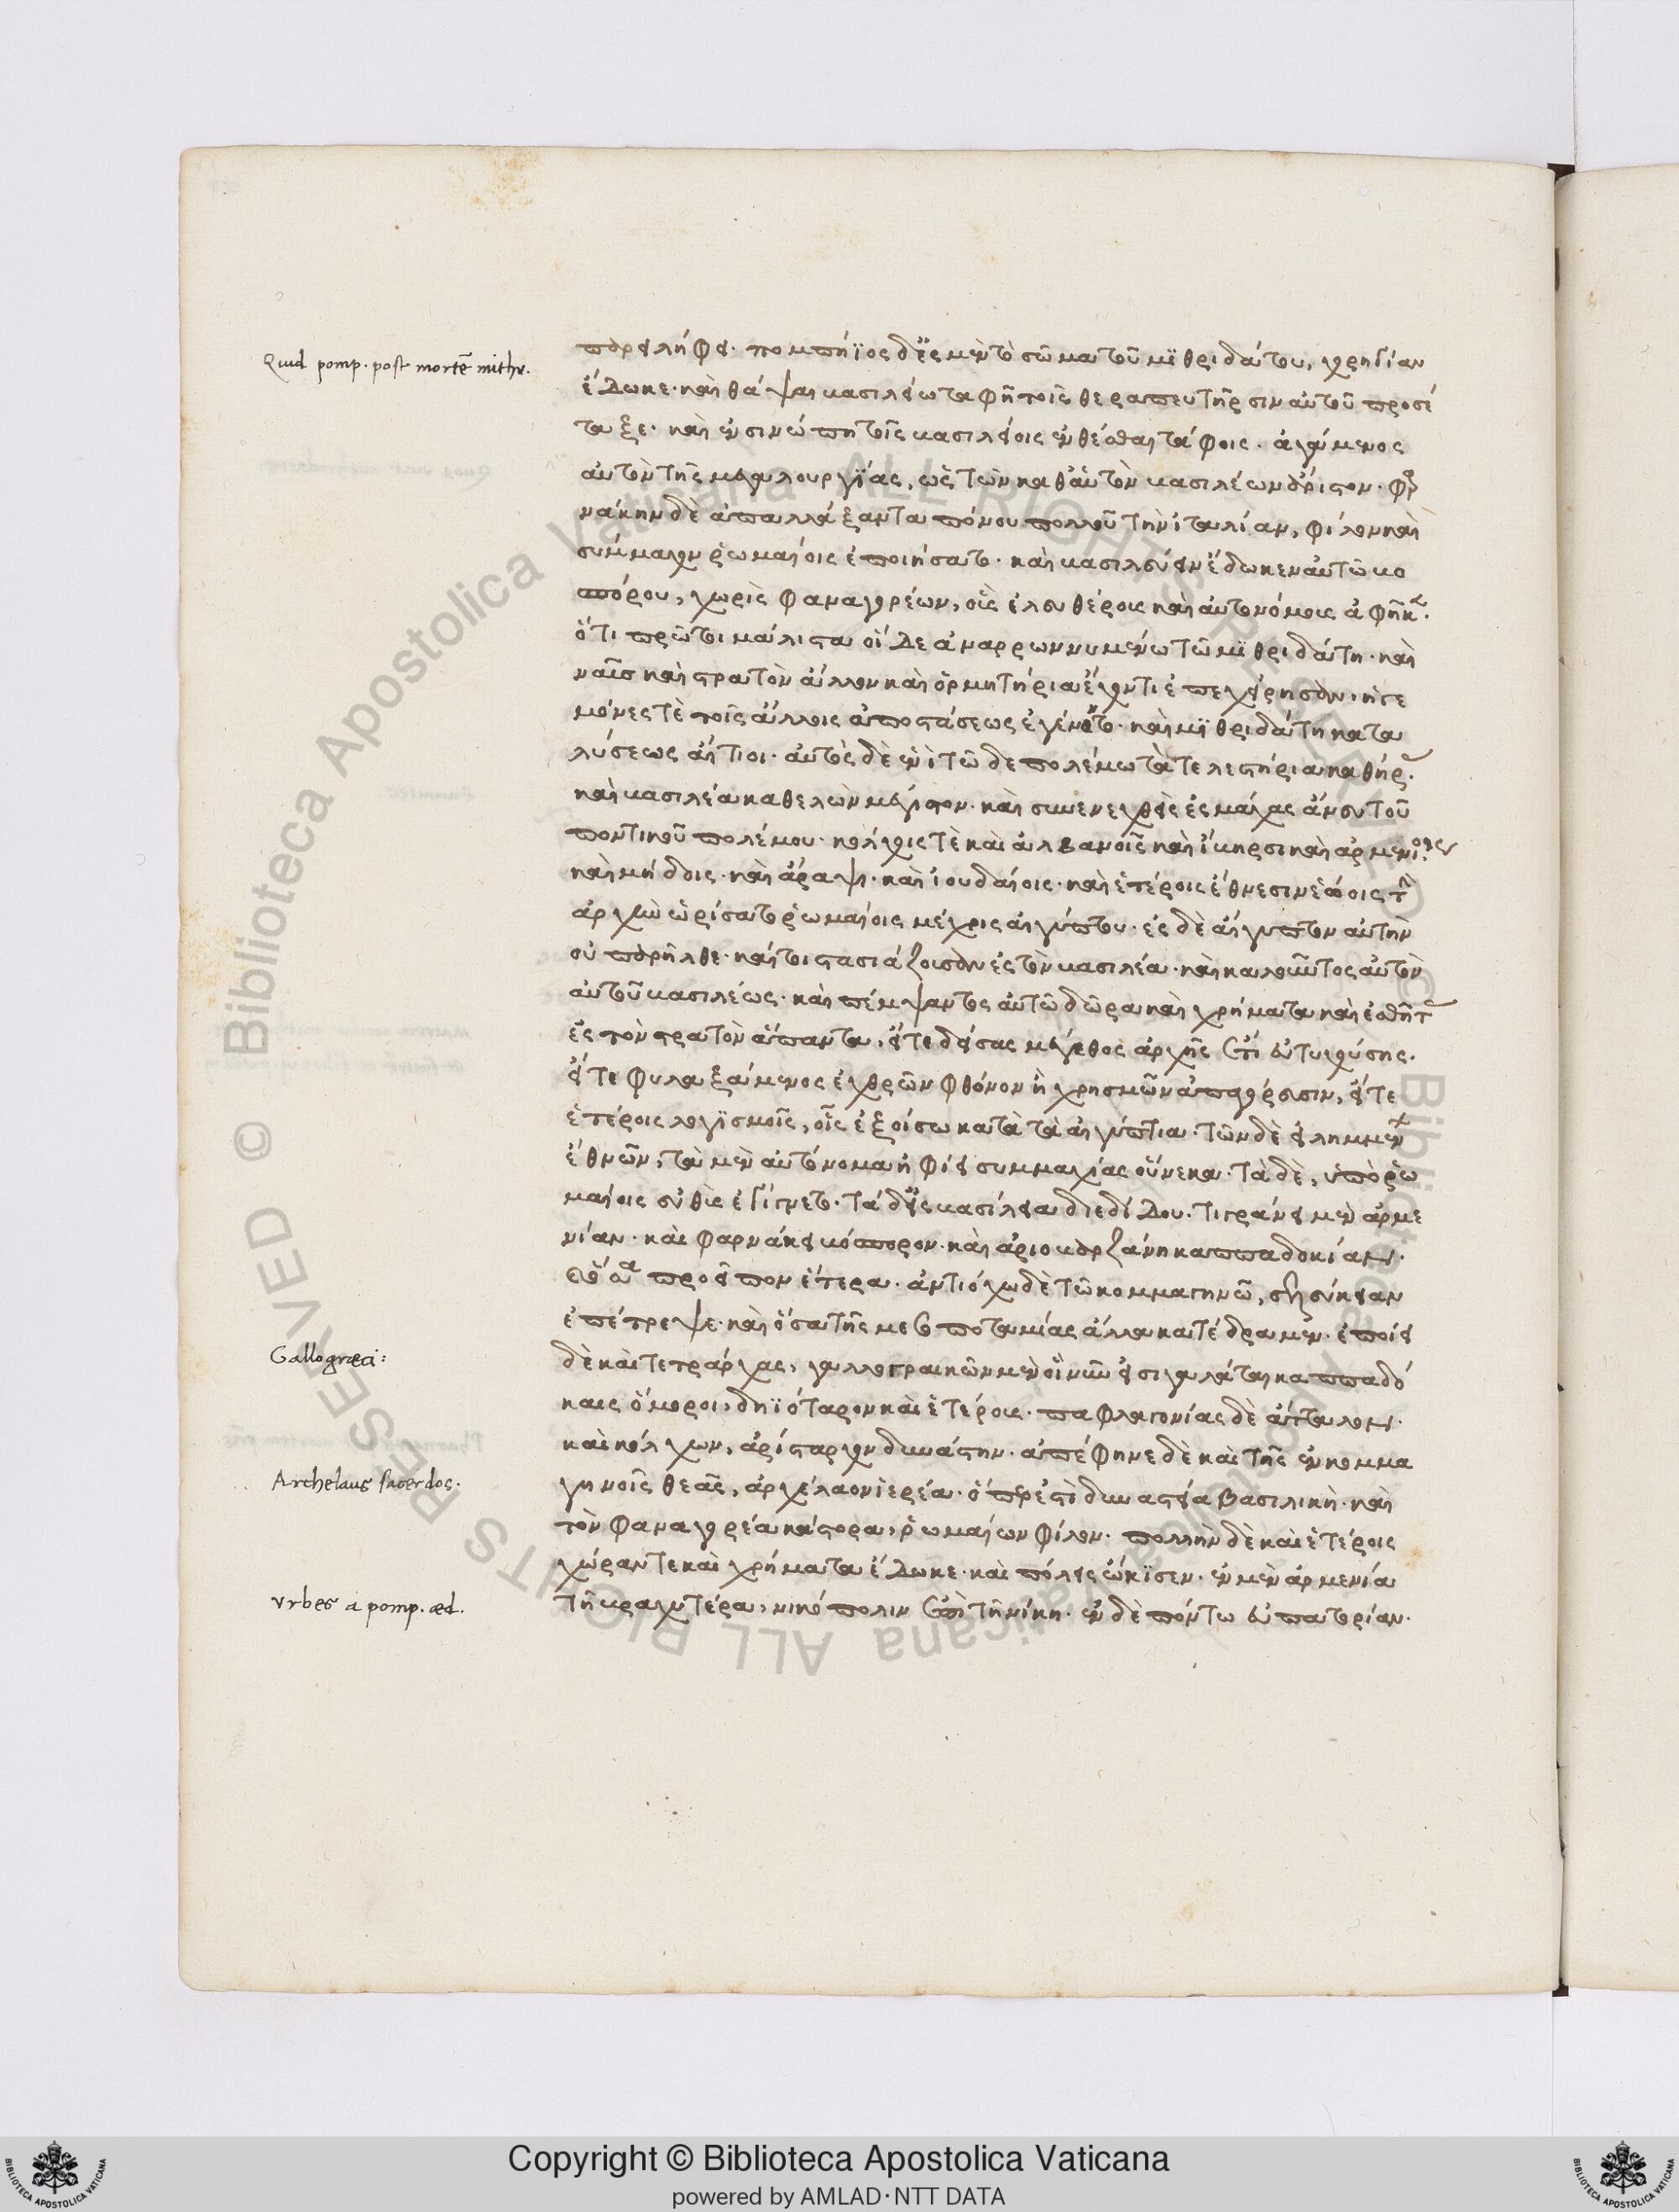 Quid pomp. post mortẽ mithr.
παρειλήφει. πομπήϊος δὲ ἐς μὲν τὸ σῶμα τοῦ μιθριδάτου, χορηγίαν
ἔδωκε. καὶ θάψαι βασιλείω ταφῆ τοῖς θεραπευτῆρσιν αὐτοῦ προσέ
ταξε. καὶ ἐν σινώπη τοῖς βασιλείοις ἐνθέσθαι τάφοις. ἀγάμενος
αὐτὸν τῆς μεγαλουργίας, ὡς τῶν καθ' αὑτὸν βασιλέων ἄριστον. φαρ
νάκην δὲ ἀπαλλάξαντα πόνου πολλοῦ τὴν ἰταλίαν, φίλον καὶ
σύμμαχον ῥωμαίοις ἐποιήσατο. καὶ βασιλεύειν ἔδωκεν αὐτῶ βο
σπόρου, χωρὶς φαναγορέων, οὓς ἐλευθέρους καὶ αὐτονόμους ἀφῆκεν.
ὅτι πρῶτοι μάλιστα οἵδε ἀναρρωννυμένω τῶ μιθριδάτη. καὶ
ναῦς καὶ στρατὸν ἄλλον καὶ ὁρμητήρια ἔχοντι ἐπεχείρησαν. ἡγε
μόνες τὲ τοῖς ἄλλοις ἀποστάσεως ἐγένοντο. καὶ μιθριδάτη κατα
λύσεως αἴτιοι. αὐτὸς δὲ ἑνὶ τῶδε πολέμω τά τε ληστήρια καθήρας
καὶ βασιλέα καθελὼν μέγιστον. καὶ συνενεχθεὶς ἐς μάχας ἄνευ τοῦ
ποντικοῦ πολέμου. κόλχοις τὲ καὶ ἀλβανοῖς καὶ ἴβηρσι καὶ ἀρμενίοις
καὶ μήδοις. καὶ ἄραψι. καὶ ἰουδαίοις. καὶ ἑτέροις ἔθνεσιν ἑώοις τὴν
ἀρχὴν ὡρίσατο ῥωμαίοις μέχρις αἰγύπτου. ἐς δὲ αἴγυπτον αὐτὴν
οὐ παρῆλθε. καίτοι στασιάζουσαν ἐς τὸν βασιλέα. καὶ καλοῦντος αὐτὸν
αὐτοῦ βασιλέως. καὶ πέμψαντος αὐτῶ δῶρα καὶ χρήματα καὶ ἐσθῆτας
ἐς τὸν στρατὸν ἅπαντα, εἴτε δείσας μέγεθος ἀρχῆς ἔτι εὐτυχούσης.
εἴτε φυλαξάμενος ἐχθρῶν φθόνον ἢ χρησμῶν ἀπαγόρευσιν, εἴτε
ἑτέροις λογισμοῖς, οὓς ἐξοίσω κατὰ τὰ αἰγύπτια. τῶν δὲ εἰλημμένων
ἐθνῶν, τὰ μὲν αὐτόνομα ἠφίει συμμαχίας οὕνεκα. τὰ δὲ, ὑπὸ ῥω
μαίοις εὐθὺς ἐγίγνετο. τὰ δ' ἐς βασίλεια διεδίδου. τιγράνει μὲν ἀρμε
νίαν. καὶ φαρνάκει βόσπορον. καὶ ἀριοβαρζάνη καππαδοκίαν.
καὶ ὅσα προεῖπον ἕτερα. ἀντιόχω δὲ τῶ κομμαγηνῶ, σελεύκειαν
ἐπέτρεψε. καὶ ὅσα τῆς μεσοποταμίας ἄλλα κατέδραμεν. ἐποίει
Gallogræci:
δὲ καὶ τετράρχας, γαλλογραικῶν μὲν οἳ νῦν εἰσι γαλάται καππαδό
καις ὅμοροι, δηϊόταρον καὶ ἑτέρους. παφλαγονίας δὲ ἄτταλον.
καὶ κόλχων, ἀρίσταρχον δυνάστην. ἀπέφηνε δὲ καὶ τῆς ἐν κομμα
Archelaus sacerdos.
γηνοῖς θεᾶς, ἀρχέλαον ἱερέα. ὅπερ ἐστὶ δυναστεία βασιλική. καὶ
τὸν φαναγορέα κάστορα, ῥωμαίων φίλον. πολλὴν δὲ καὶ ἑτέροις
χώραν τε καὶ χρήματα ἔδωκε. καὶ πόλεις ὤκισεν. ἐν μὲν ἀρμενία
Vrbes a pomp. æd.
τῆ βραχυτέρα, νικόπολιν ἐπὶ τῆ νίκη. ἐν δὲ πόντω εὐπατορίαν.
Copyright © Biblioteca Apostolica Vaticana
powered by AMLAD·NTT DATA
© Biblioteca Apostolica Vaticana ALL RIGHTS RESERVED
© Biblioteca Apostolica Vaticana ALL RIGHTS RESERVED
BIBLIOTECA APOSTOLICA VATICANA
BIBLIOTECA APOSTOLICA VATICANA